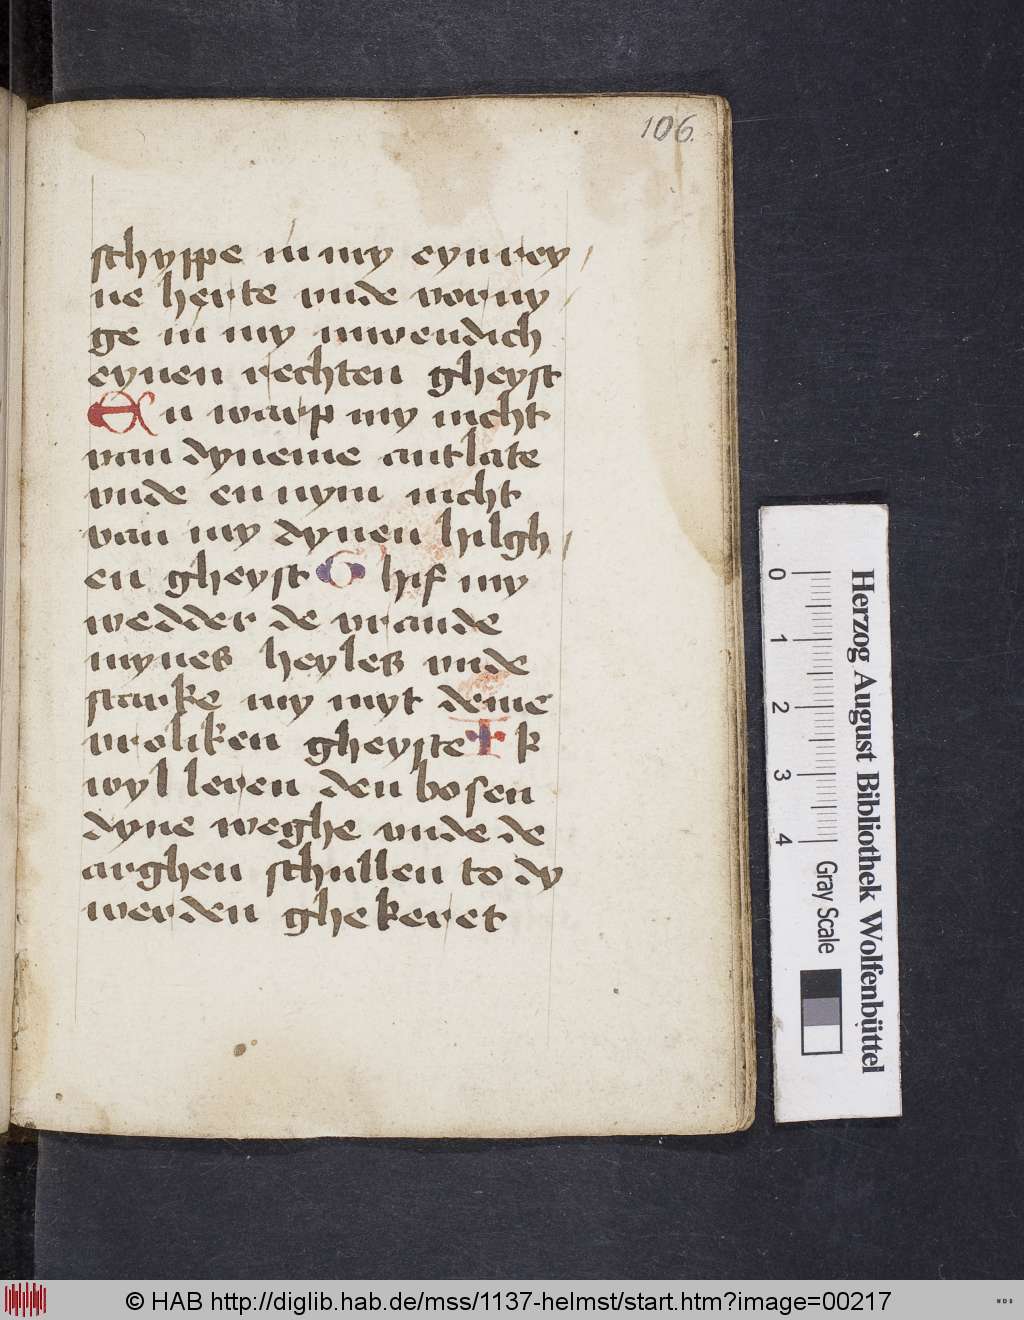 106.
schyppe in my eyn rey/
ne herte vnde vorny/
ge in my inwendich
eynen rechten gheyst
En warp my nicht
van dyneme antlate
vnde en nym nicht
van my dynen hilgh/
en gheyst Ghif my
wedder de vraude
mynes heyles vnde
starke my myt deme
vroliken gheyste Ik
wyl leren den bosen
dyne weghe vnde de
arghen schullen to dy
werden ghekeret
0 1 2 3 4
Gray Scale
Herzog August Bibliothek Wolfenbüttel
© HAB http://diglib.hab.de/mss/1137-helmst/start.htm?image=00217